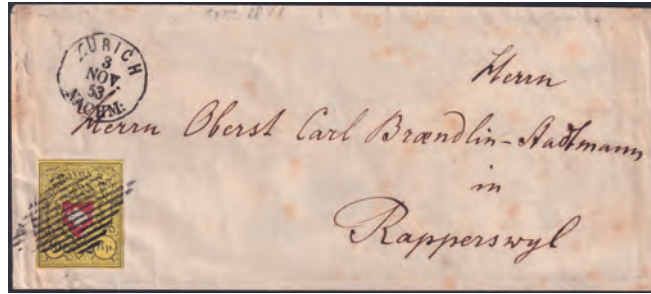 ZÜRICH
3
NOV.
53
NACHM:
Herrn
Herrn Oberst Carl Brændlin-Stadtmann
in
Rapperswyl
RAYON